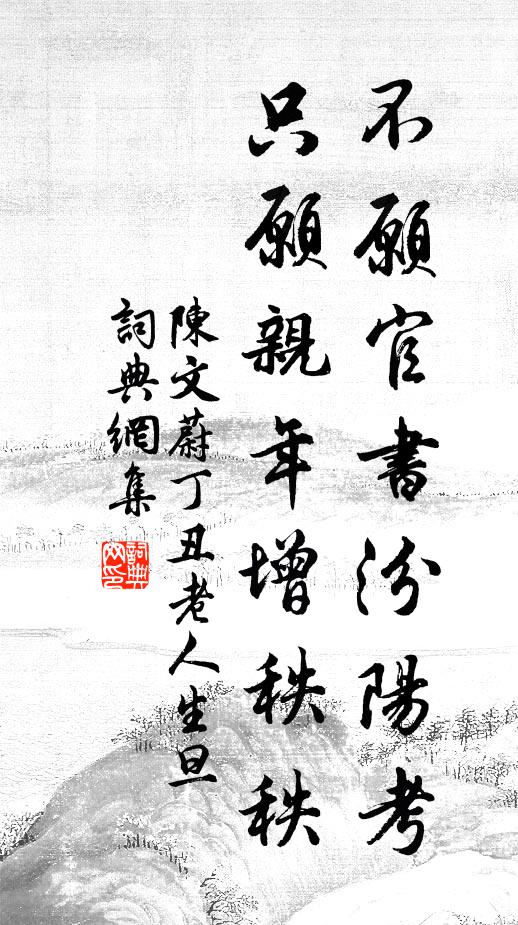 不願官書汾陽考
只願親年增秩秩
陳文蔚丁丑老人生旦
詞典網集
詞典網印